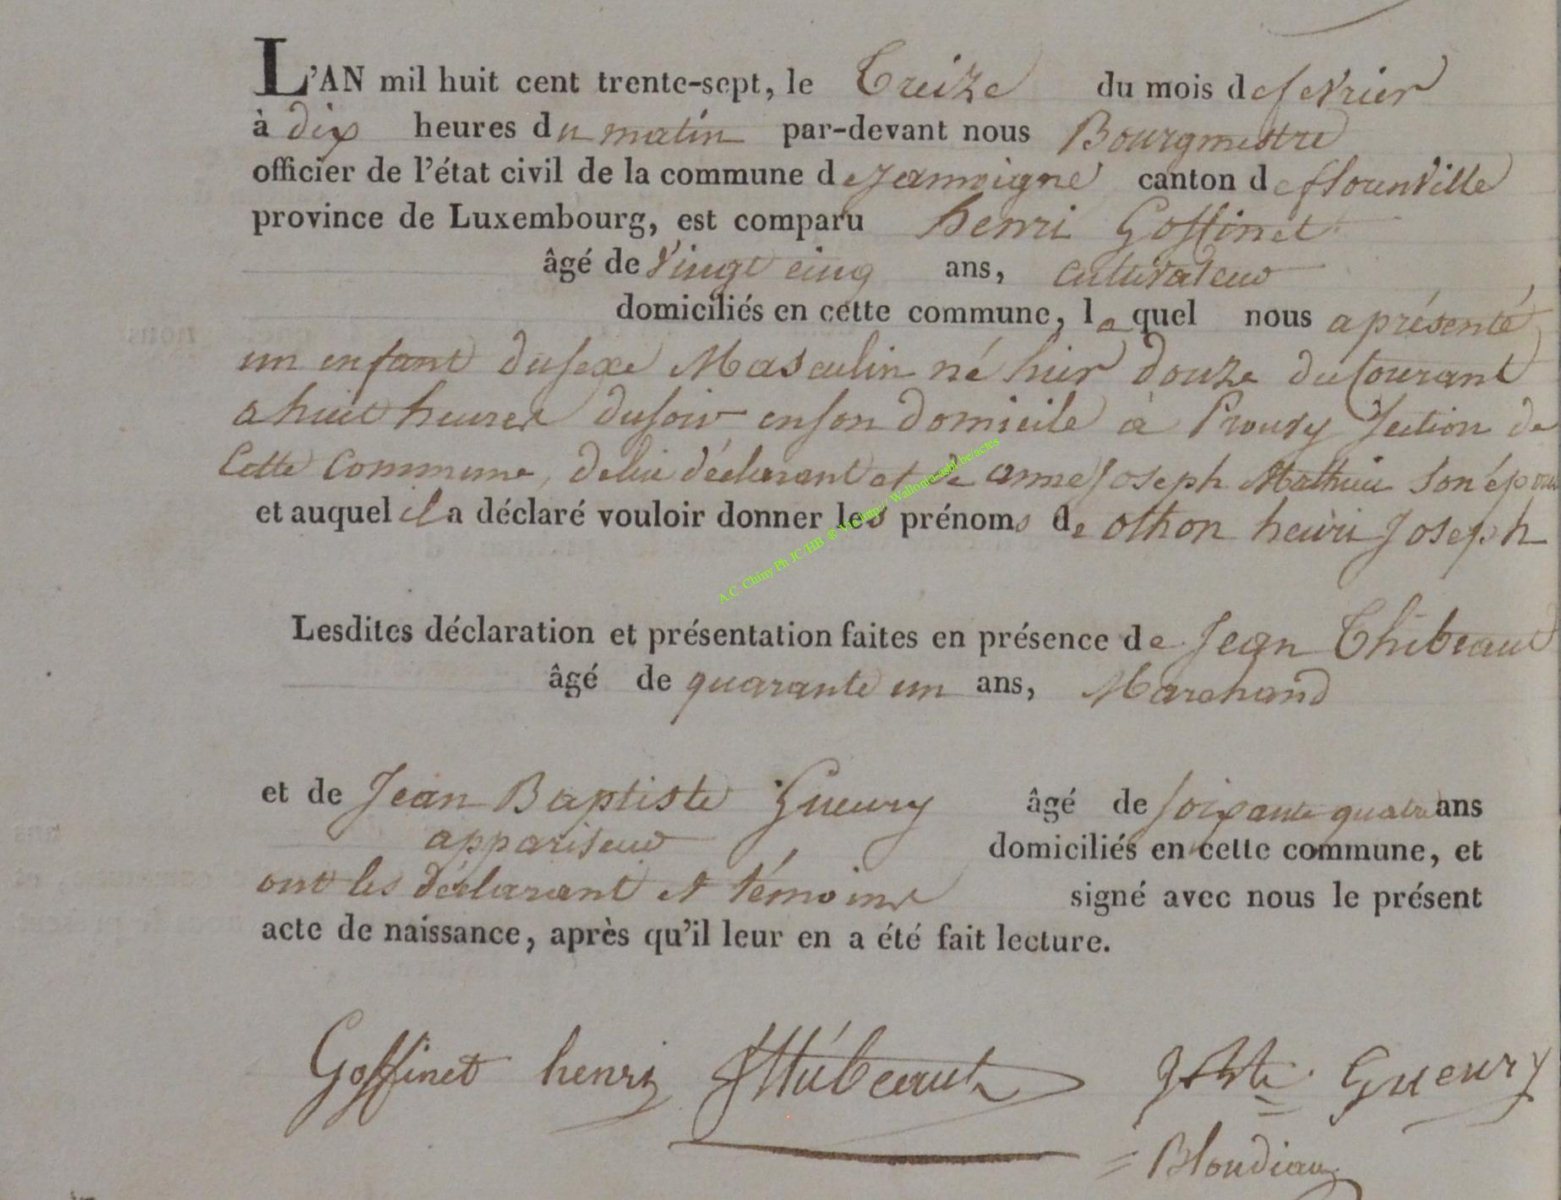 L'AN mil huit cent trente-sept, le Treize du mois de fevrier
à dix heures du matin par-devant nous Bourgmestre
officier de l'état civil de la commune de Jamoigne canton de flounville
province de Luxembourg, est comparu henri Goffinet
âgé de vingt cinq ans, cultivateur
domiciliés en cette commune, le quel nous a présenté
un enfant du sexe Masculin né hier douze du Courant
a huit heures du soir en son domicile à Prouvy Section de
Cette Commune, de lui déclarant et de anne Joseph Mathieu son épouse
et auquel il a déclaré vouloir donner les prénoms de othon henri Joseph
Lesdites déclaration et présentation faites en présence de Jean Thibeaut
âgé de quarante un ans, Marchand
et de Jean Baptiste Gueury âgé de soixante quatre ans
appariteur domiciliés en cette commune, et
ont les déclarant et témoins signé avec nous le présent
acte de naissance, après qu'il leur en a été fait lecture.
Goffinet henri JThibeaut J Bte Gueury
Blondiau